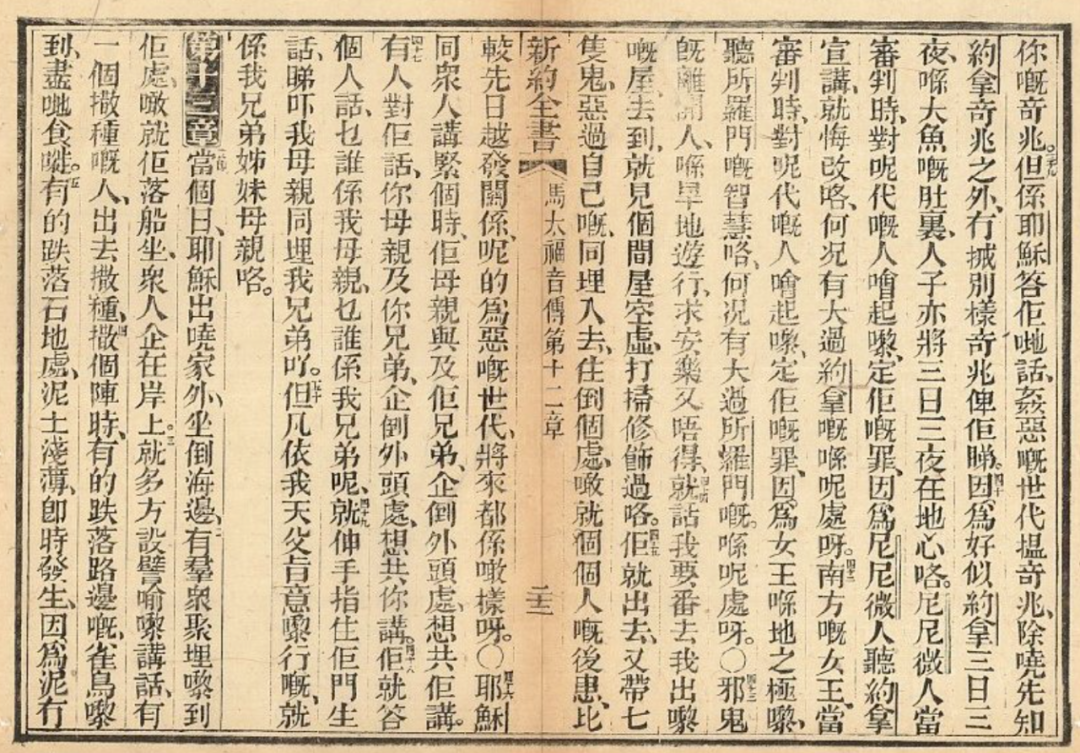 你嘅奇兆。卅九但係耶穌答佢哋話、姦惡嘅世代搵奇兆、除嘵先知
約拿奇兆之外、冇搣別樣奇兆俾佢睇。四十因爲好似約拿三日三
夜、喺大魚嘅肚裏、人子亦將三日三夜在地心咯。尼尼微人當
審判時、對呢代嘅人噲起嚟、定佢嘅罪、因爲尼尼微人聽約拿
宣講、就悔改略、何况有大過約拿嘅喺呢處呀。四二南方嘅女王、當
審判時、對呢代嘅人噲起嚟、定佢嘅罪、因爲女王喺地之極嚟、
聽所羅門嘅智慧咯、何况有大過所羅門嘅。喺呢處呀。〇四三邪鬼
旣離開人、喺旱地遊行、求安樂又唔得、四四就話我要番去我出嚟
嘅屋、去到、就見個間屋空虛、打掃修飾過咯。四五佢就出去、又帶七
隻鬼、惡過自己嘅、同埋入去、住倒個處、噉就個個人嘅後患、比
新約全書 馬太福音傳第十二章 二十三
較先日越發關係、呢的爲惡嘅世代、將來都係噉樣呀。〇四六耶穌
同衆人講緊個時、佢母親與及佢兄弟、企倒外頭處、想共佢講。
四七有人對佢話、你母親及你兄弟、企倒外頭處、想共你講。四十八佢就答
個人話、乜誰係我母親、乜誰係我兄弟呢、四九就伸手指住佢門生
話、睇吓我母親同埋我兄弟吖。五十但凡依我天父旨意嚟行嘅、就
係我兄弟姊妹母親咯。
第十三章 當個日、耶穌出嘵家外、坐倒海邊、二有羣衆聚埋嚟到
佢處、噉就佢落船坐、衆人企在岸上。三就多方設譬喻嚟講話、有
一個撒種嘅人、出去撒種、四撒個陣時、有的跌落路邊嘅、雀鳥嚟
到、盡哋食嘥。五有的跌落石地處、泥土淺薄、卽時發生、因爲泥冇